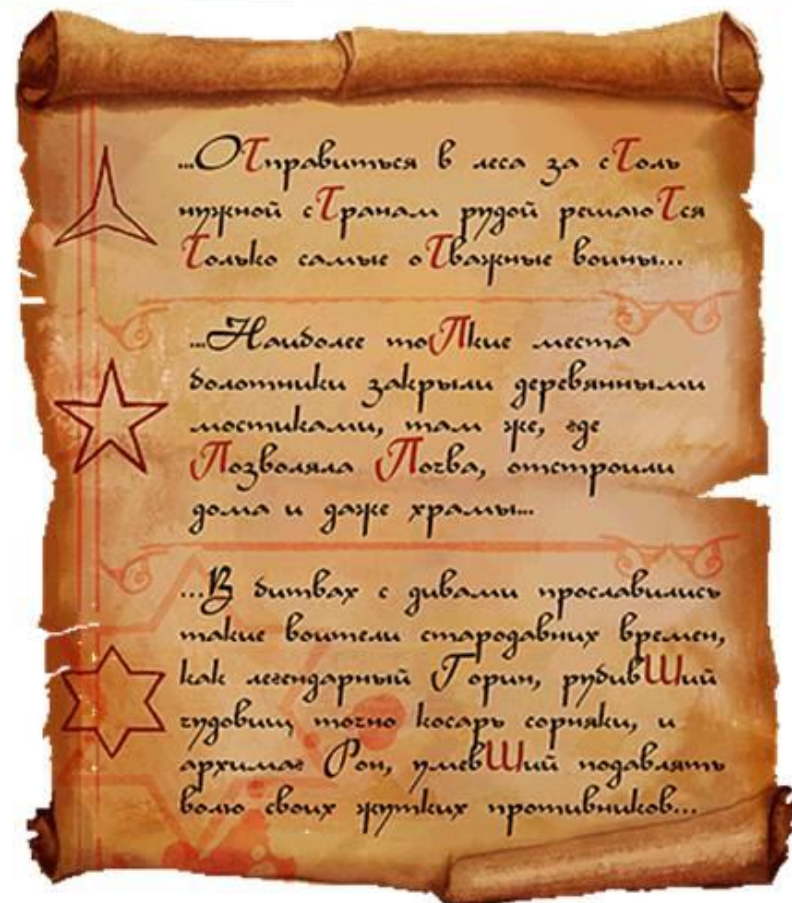 ...ОТправиться в леса за сТоль
нужной сТранам рудой решаюТся
Только самые оТважные воины...
...Наиболее тоПкие места
болотники закрыли деревянными
мостиками, там же, где
Позволяла Почва, отстроили
дома и даже храмы...
...В битвах с дивами прославились
такие воители стародавних времен,
как легендарный Горин, рубивШий
чудовищ точно косарь сорняки, и
архимаг Рон, умевШий подавлять
волю своих жутких противников...